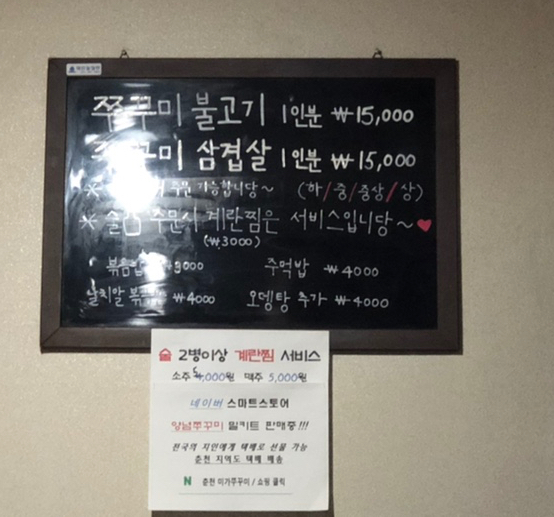 쭈꾸미 불고기 1인분 ₩15,000
쭈꾸미 삼겹살 1인분 ₩15,000
※ 주문 가능합니당~ (하/중/중상/상)
※ 술 주문시 계란찜은 서비스입니당~♥
(₩3000)
볶음밥 ₩3000 주먹밥 ₩4000
날치알 ₩4000 오뎅탕 추가 ₩4000
술 2병이상 계란찜 서비스
소주 5,000원 맥주 5,000원
네이버 스마트스토어
밀키트 판매중!!!
전국의 지인에게 택배로 선물 가능
춘천 지역도 택배 배송
N 춘천 미가쭈꾸미 / 쇼핑 클릭